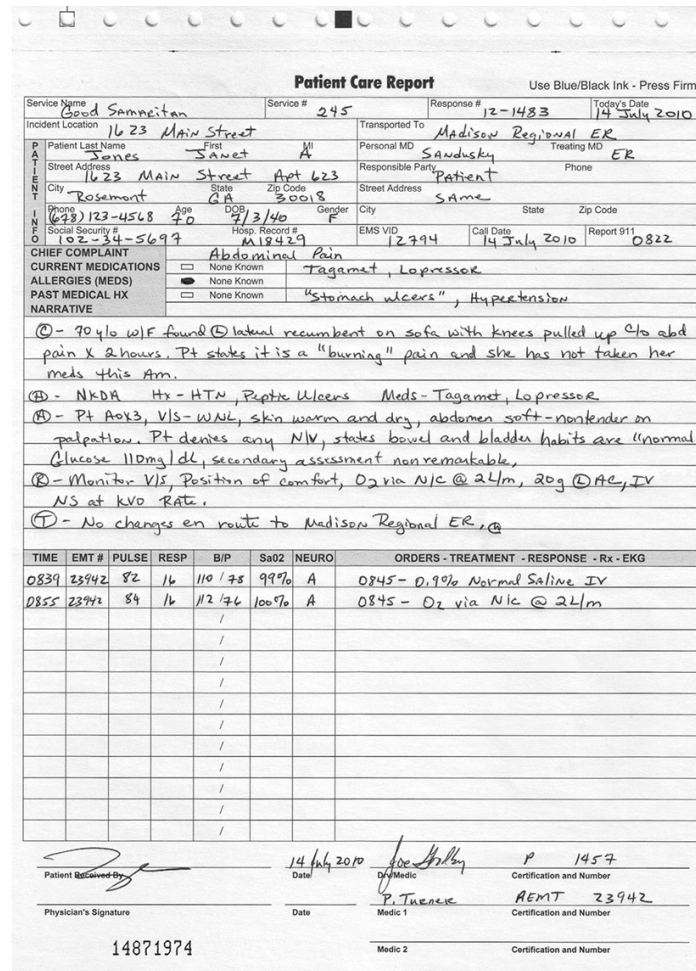 Patient Care Report
Use Blue/Black Ink - Press Firm
Service Name Good Samaritan Service # 245 Response # 12-1483 Today's Date 14 July 2010
Incident Location 1623 Main Street Transported To Madison Regional ER
PATIENT INFO
Patient Last Name Jones First Janet MI A Personal MD Sandusky Treating MD ER
Street Address 1623 Main Street Apt 623 Responsible Party Patient Phone
City Rosemont State GA Zip Code 30018 Street Address Same
Phone (678)123-4568 Age 70 DOB 7/3/40 Gender F City State Zip Code
Social Security # 102-34-5697 Hosp. Record # M18429 EMS VID 12794 Call Date 14 July 2010 Report 911 0822
CHIEF COMPLAINT Abdominal Pain
CURRENT MEDICATIONS None Known Tagamet, Lopressor
ALLERGIES (MEDS) None Known
PAST MEDICAL HX None Known "Stomach ulcers", Hypertension
NARRATIVE
C - 70 y/o W/F found L lateral recumbent on sofa with knees pulled up c/o abd
pain x 2 hours. Pt states it is a "burning" pain and she has not taken her
meds this Am.
H - NKDA Hx - HTN, Peptic Ulcers Meds - Tagamet, Lopressor
A - Pt AOX3, V/S - WNL, skin warm and dry, abdomen soft - nontender on
palpation. Pt denies any N/V, states bowel and bladder habits are "normal
Glucose 110mg/dL, secondary assessment nonremarkable,
R - Monitor V/S, Position of comfort, O2 via N/C @ 2L/m, 20g L AC, IV
NS at KVO Rate.
T - No changes en route to Madison Regional ER.
TIME EMT # PULSE RESP B/P Sa02 NEURO ORDERS - TREATMENT - RESPONSE - Rx - EKG
0839 23942 82 16 110 / 78 99% A 0845 - 0.9% Normal Saline IV
0855 23942 84 16 112 / 76 100% A 0845 - O2 via N/C @ 2L/m
/
/
/
/
/
/
/
/
/
/
/
14 July 2010 Joe P 1457
Patient Received By Date Drv/Medic Certification and Number
P. Turner AEMT 23942
Physician's Signature Date Medic 1 Certification and Number
14871974
Medic 2 Certification and Number